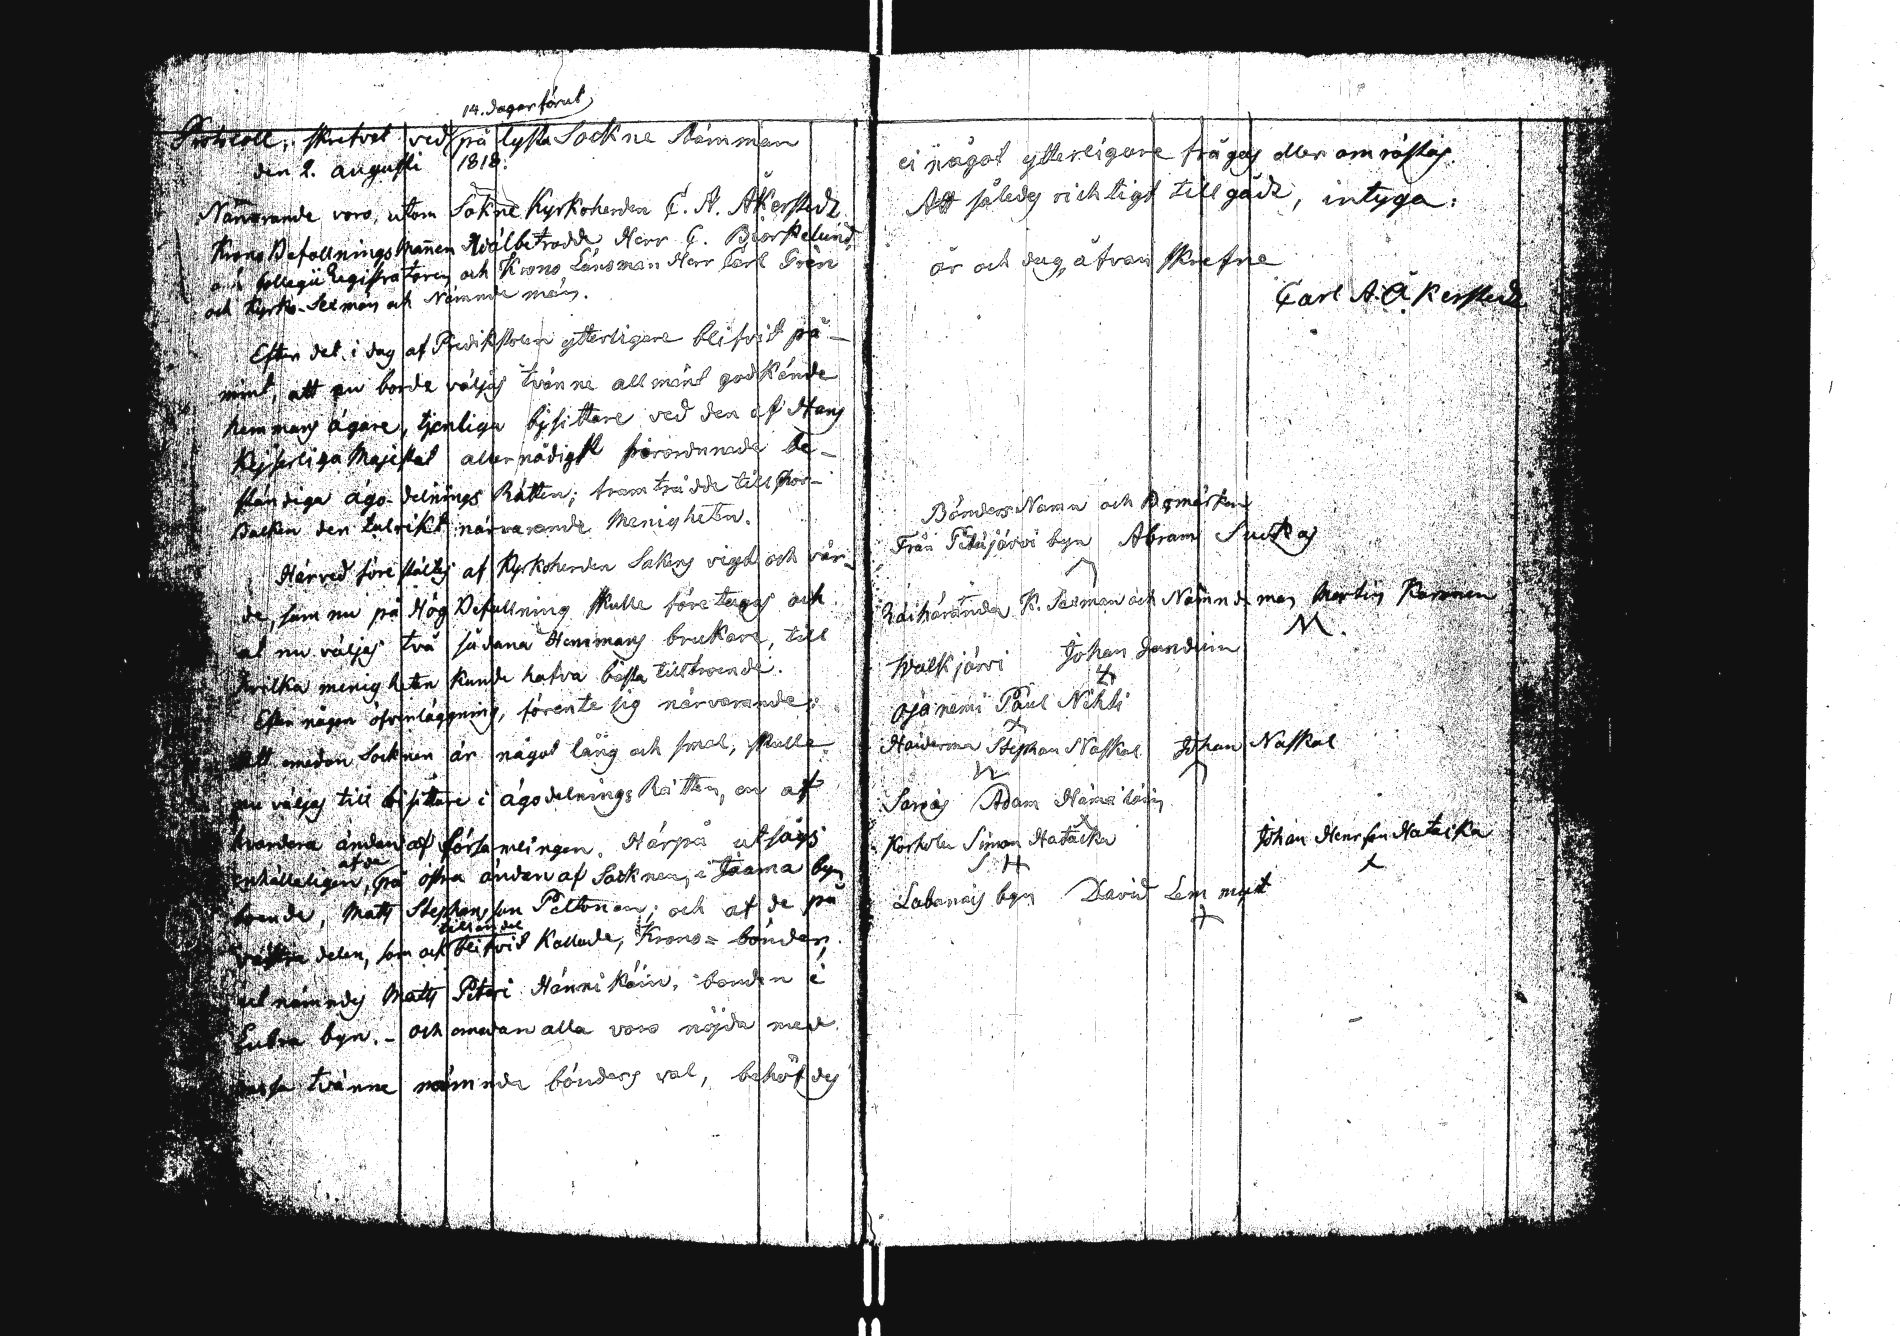 14. dagar förut
Protocoll, skrefvet ved pålyst Sockne Stämman
den 2. augusti 1818.
Närvarande voro, utom Sokne Kyrkoherden C. A. Åkerstedt
Krono Befallnings Mannen Wälbetrodde Herr C. Biörkelund,
och Collegii Registratoren och Krono Länsman Herr Carl Grén
och Kyrko-Sexmän och Nämnde män.
Efter det i dag af Predikstolen ytterligare blifvit på-
mint, att nu borde väljas tvänne allmänt godkände
hemmans ägare, tjenliga bisittare ved den af Hans
Kejserliga Majestät allernådigst förordnade be-
ständiga Ägo-delnings Rätten; framträdde till
den talrikt närvarande Menigheten.
Härved föreställtes af Kyrkoherden Sakens vigt och vär-
de, som nu på Hög Befallning skulle företagas och
at nu väljas två sådana Hemmans brukare, till
hvilka menigheten kunde hafva bästa tilltroende.
Efter någon öfverläggning, förente sig närvarande:
Att emedan Socknen är något lång och smal, skulle
nu väljas till bisittare i ägodelnings Rätten, en af
hvardera ändan af församlingen. Härpå utsågs
enhälleligen, af de på östra ändan af Socknen, i Jaama byn
boende, Mats Stephansson Peltonen; och af de på
västra delen, som och till en del blifvit kallade, Krono-bönder,
utnämndes Mats Petri Hännikäin, bonden i
byn. - och emedan alla voro nöjda med
dessa tvänne nämnde bönders val, behöfdes
ei något ytterligare frågas eller omröstas.
Att således richtigt tillgådt, intyga:
år och dag, åfvan skrefne
Carl A. Åkerstedt
Bönders Namn och Bomärken
Från byn Abram
K. Sexman och Nämndeman Martin
M.
Walkjärvi Johan
Ojanemi Pául Nihti
Stephan Naskal Johan Naskal
Adam
Simon Hatacka Johan Henrsson Hatacka
S H
byn David